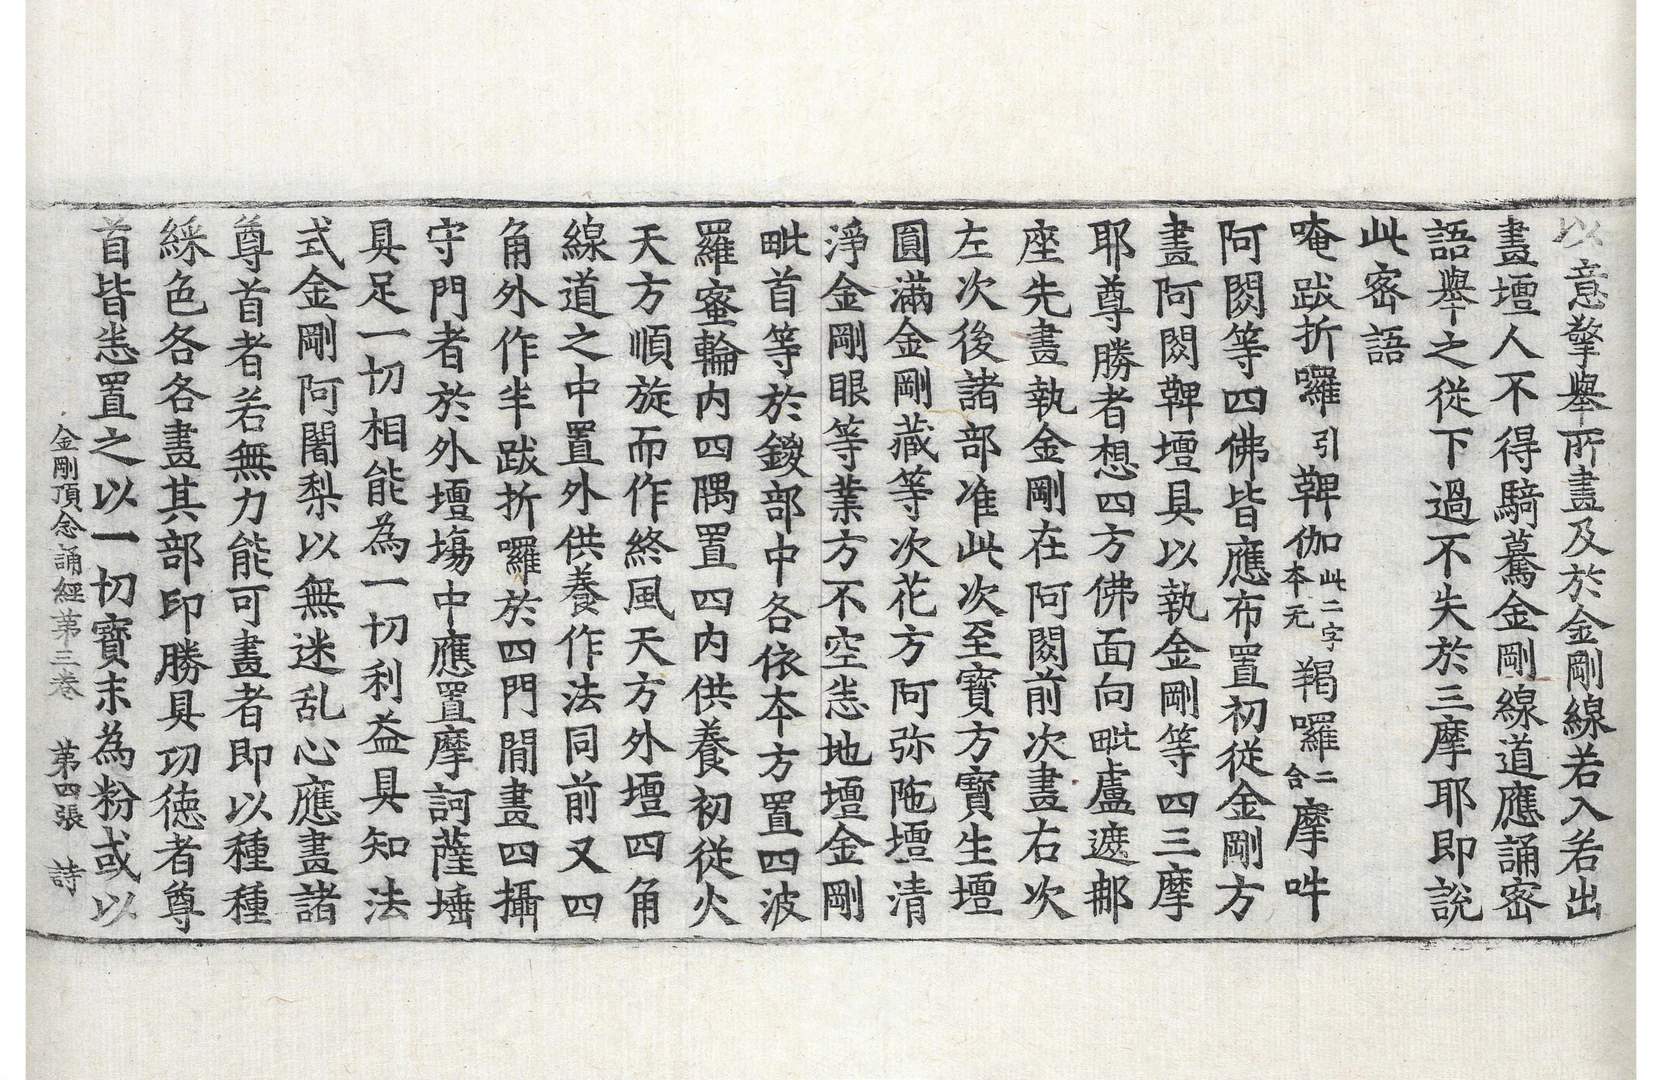 以意擎舉所畫及於金剛線若入若出
畫壇人不得騎驀金剛線道應誦密
語舉之從下過不失於三摩耶即說
此密語
唵跋折囉引鞞伽此二字本无羯囉二合摩吽
阿閦等四佛皆應布置初從金剛方
畫阿閦鞞壇具以執金剛等四三摩
耶尊勝者想四方佛面向毗盧遮那
座先畫執金剛在阿閦前次畫右次
左次後諸部准此次至寶方寶生壇
圓滿金剛藏等次花方阿弥陁壇清
淨金剛眼等業方不空悉地壇金剛
毗首等於鑁部中各依本方置四波
羅蜜輪内四隅置四内供養初從火
天方順旋而作終風天方外壇四角
線道之中置外供養作法同前又四
角外作半跋折囉於四門間畫四攝
守門者於外壇場中應置摩訶薩埵
具足一切相能為一切利益具知法
式金剛阿闍梨以無迷乱心應畫諸
尊首者若無力能可畫者即以種種
綵色各各畫其部印勝具功徳者尊
首皆悉置之以一切寶末為粉或以
金剛頂念誦經第三卷 第四張 詩